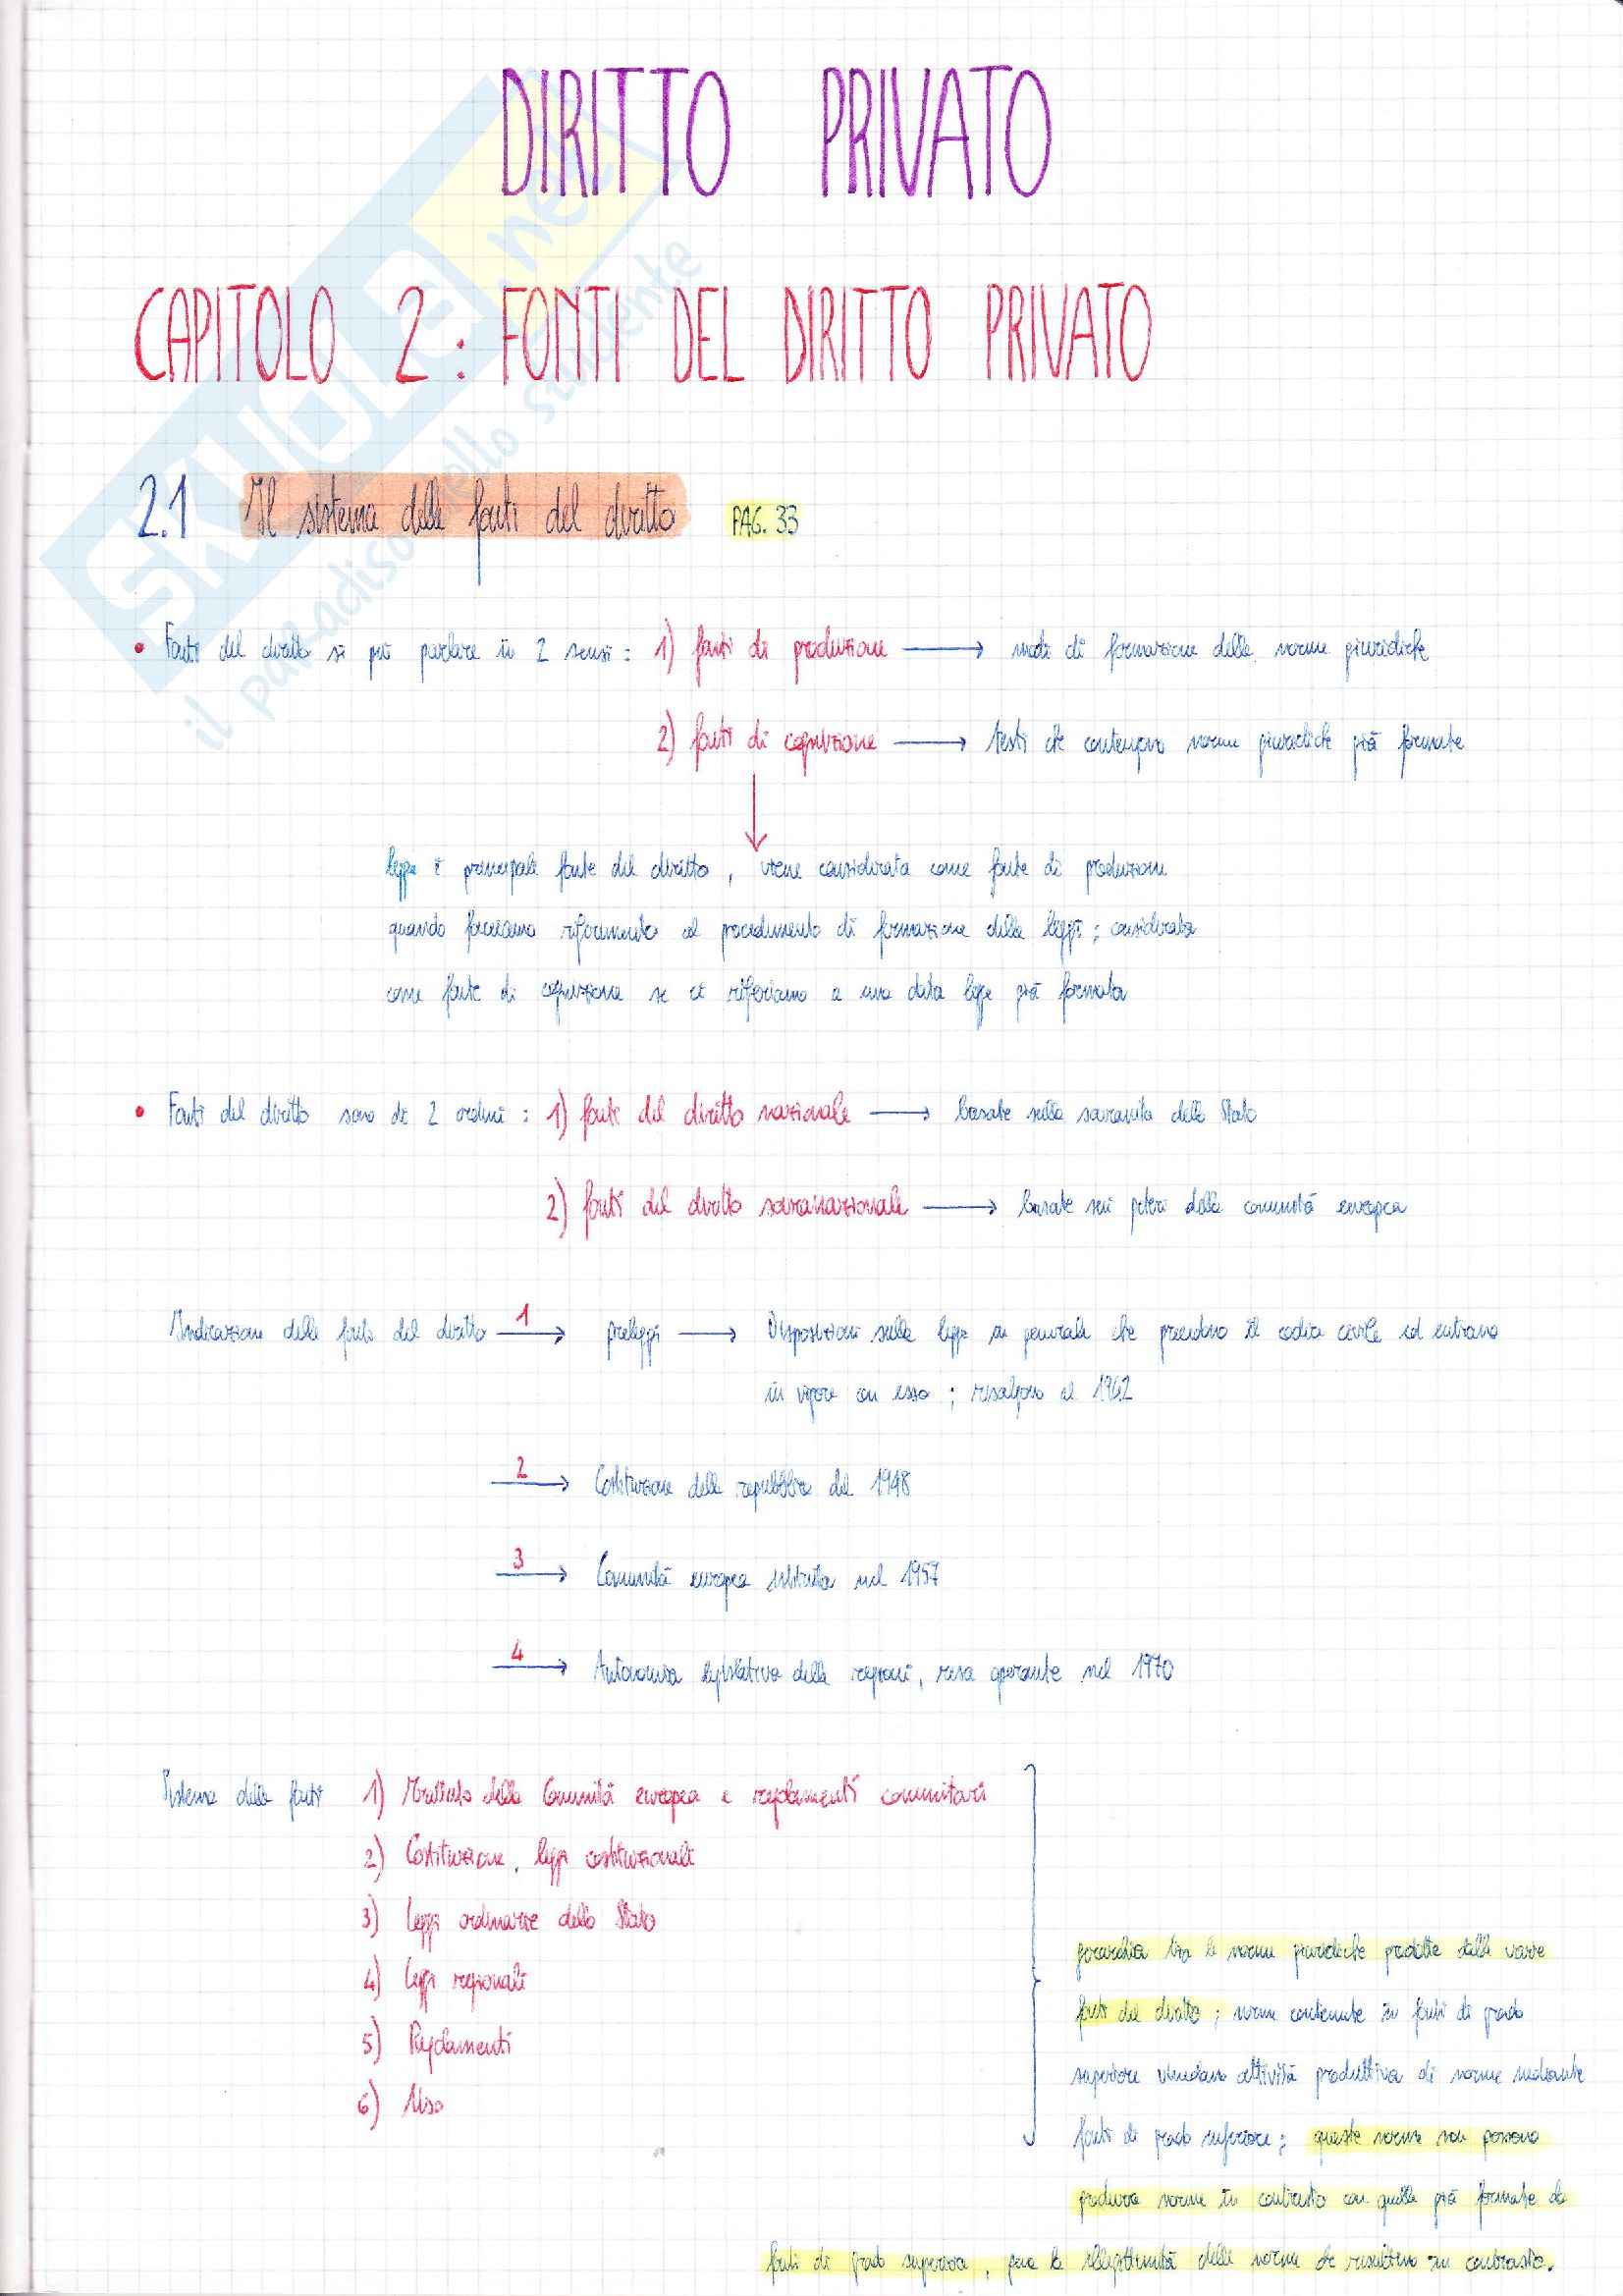 DIRITTO PRIVATO
CAPITOLO 2 : FONTI DEL DIRITTO PRIVATO
2.1 Il sistema delle fonti del diritto PAG. 33
• Fonti del diritto si può parlare in 2 sensi : 1) fonti di produzione → modi di formazione delle norme giuridiche
2) fonti di cognizione → testi che contengono norme giuridiche già formate
legge è principale fonte del diritto , viene considerata come fonte di produzione
quando facciamo riferimento al procedimento di formazione delle leggi ; considerata
come fonte di cognizione se ci riferiamo a una data legge già formata
• Fonti del diritto sono di 2 ordini : 1) fonte del diritto nazionale → basate sulla sovranità dello Stato
2) fonti del diritto sovranazionale → basate sui poteri della comunità europea
Indicazione delle fonti del diritto 1 → preleggi → Disposizioni sulla legge in generale che precedono il codice civile ed entrano
in vigore con esso ; risalgono al 1942
2 → Costituzione della repubblica del 1948
3 → Comunità europea istituita nel 1957
4 → Autonomia legislativa delle regioni, resa operante nel 1970
Sistema delle fonti 1) Trattato della Comunità europea e regolamenti comunitari
2) Costituzione, leggi costituzionali
3) leggi ordinarie dello Stato
4) leggi regionali
5) Regolamenti
6) Uso
gerarchia tra le norme giuridiche prodotte dalle varie
fonti del diritto ; norme contenute in fonti di grado
superiore vincolano attività produttiva di norme mediante
fonti di grado inferiore ; queste norme non possono
produrre norme in contrasto con quelle già formate da
fonti di grado superiore, pena la illegittimità delle norme che risultino in contrasto.
SKUOLA.net
il paradiso dello studente